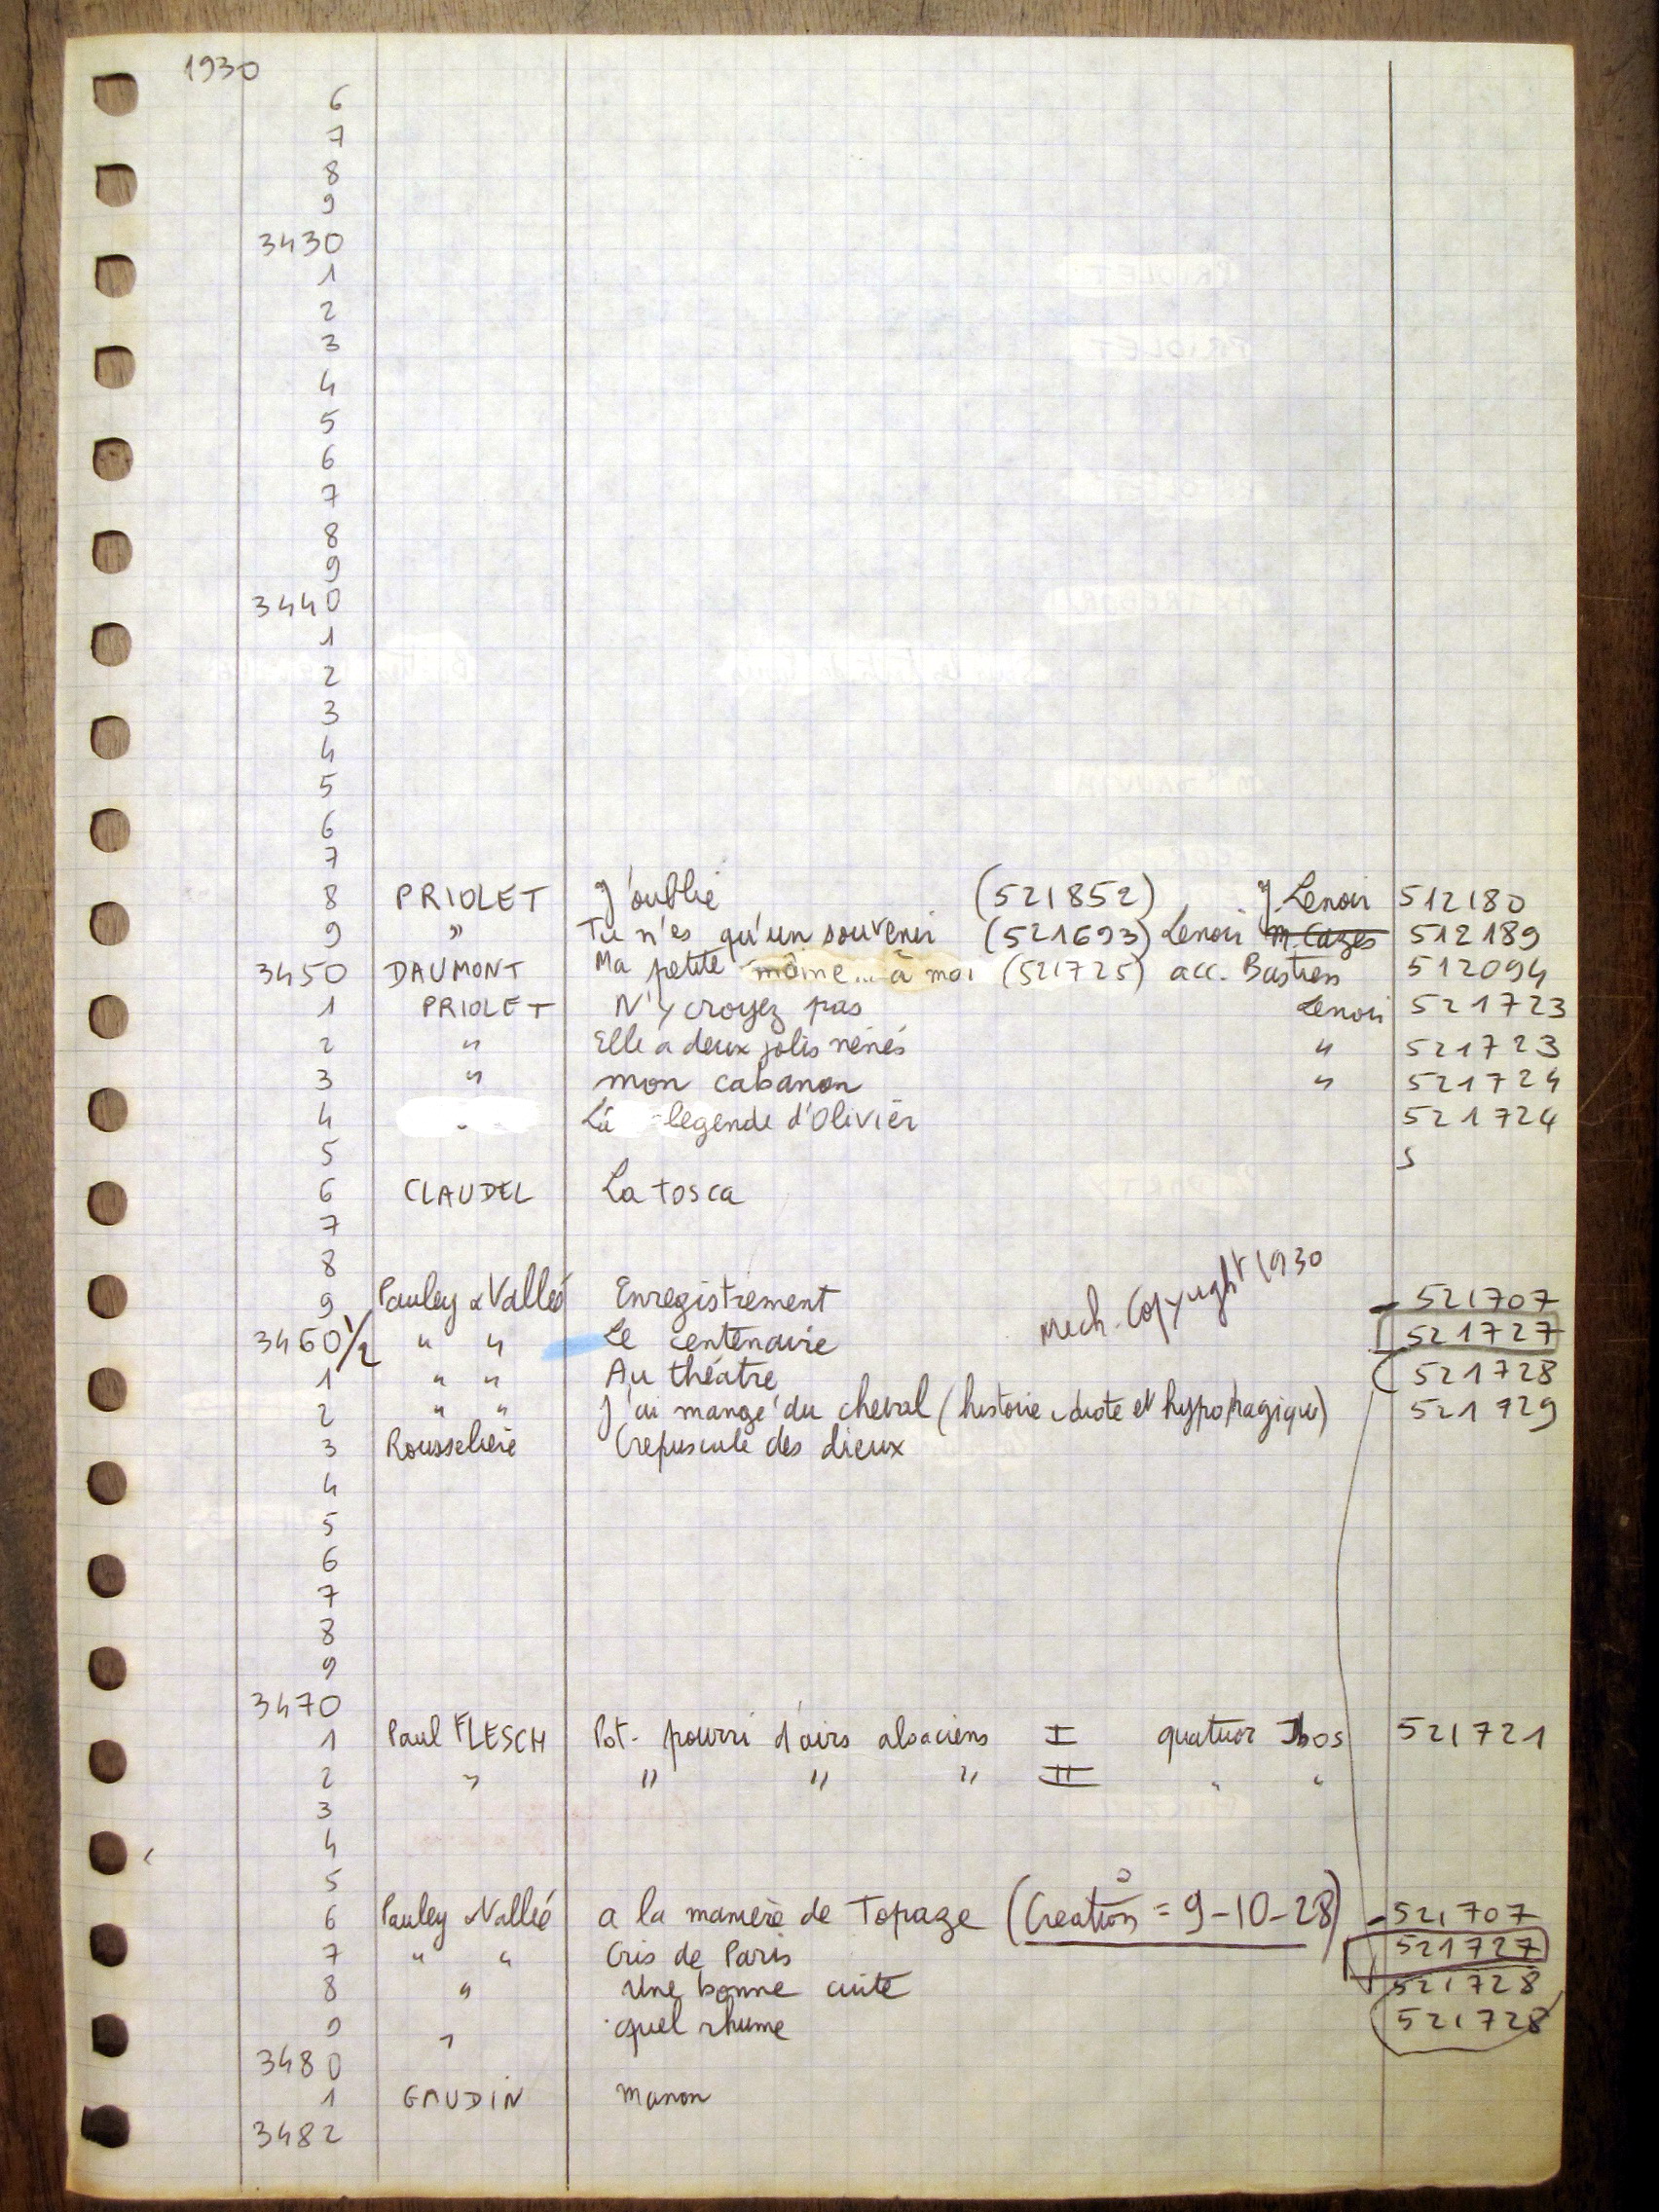 1930
6
7
8
9
3430
1
2
3
4
5
6
7
8
9
3440
1
2
3
4
5
6
7
8 PRIOLET J'oublie (521852) J. Lenoir 512180
9 " Tu n'es qu'un souvenir (521693) Lenoir M. Cazes 512189
3450 DAUMONT Ma petite môme... à moi (521725) acc. Bastien 512094
1 PRIOLET N'y croyez pas Lenoir 521723
2 " Elle a deux jolis nénés " 521723
3 " mon cabanon " 521724
4 " La legende d'Olivier 521724
5 5
6 CLAUDEL La Tosca
7
8
Mech. Copyright 1930
9 Pauley & Vallée Enregistrement 521707
3460 1/2 " " Le centenaire 521727
1 " " Au théatre 521728
2 " " J'ai mangé du cheval (histoire idiote et hyppophagique) 521729
3 Rousselière Crepuscule des dieux
4
5
6
7
8
9
3470
1 Paul FLESCH Pot-pourri d'airs alsaciens I quatuor Ibos 521721
2 " " " " II " "
3
4
5
6 Pauley & Vallée a la manière de Topaze (Creation = 9-10-28) 521707
7 " " Cris de Paris 521727
8 " Une bonne cuite 521728
9 " quel rhume 521728
3480
1 GAUDIN Manon
3482